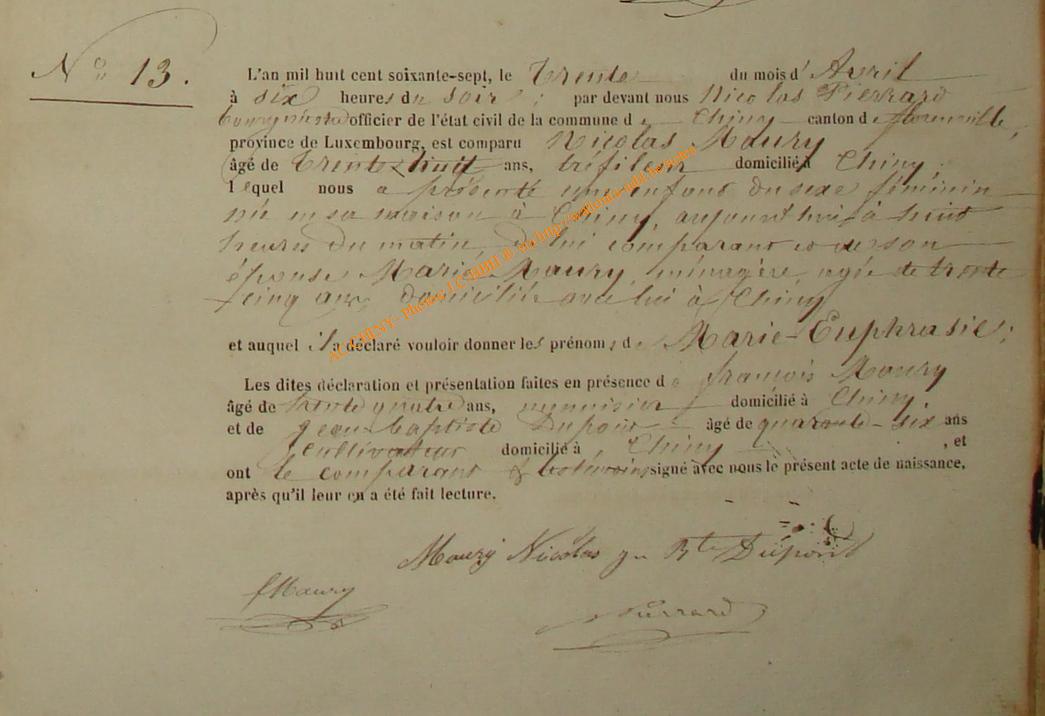 N° 13.
L'an mil huit cent soixante-sept, le trente du mois d'Avril
à six heures du soir; par devant nous Nicolas Pierrard
bourgmestre officier de l'état civil de la commune de Chiny canton de florenville,
province de Luxembourg, est comparu Nicolas Maury
âgé de trente-huit ans, tréfileur domicilié à Chiny;
lequel nous a présenté un enfant du sexe féminin
née en sa maison à Chiny, aujourd'hui à huit
heures du matin de lui comparant et de son
épouse Marie Maury, ménagère agée de trente
cinq ans, domiciliée avec lui à Chiny
et auquel il a déclaré vouloir donner les prénoms de Marie-Euphrasie;
Les dites déclaration et présentation faites en présence de françois Maury
âgé de trente quatre ans, menuisier domicilié à Chiny,
et de Jean Baptiste Dupont âgé de quarante-six ans
Cultivateur domicilié à Chiny, et
ont le comparant & les témoins signé avec nous le présent acte de naissance,
après qu'il leur en a été fait lecture.
Maury Nicolas Bte Dupont
f Maury
Pierrard
ALCHINY - Photos J.C.